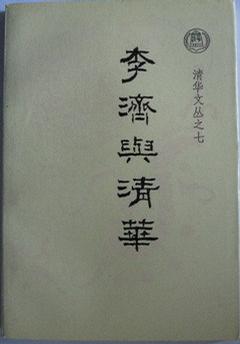 李濟與清華
清华文丛之七